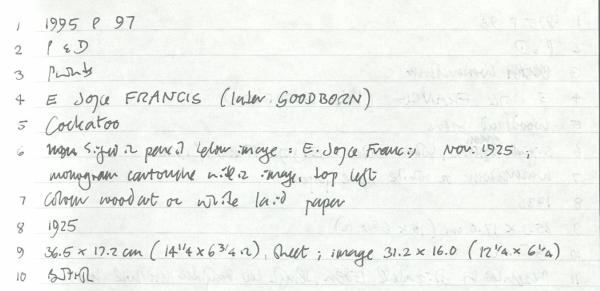 1 1995 P 97
2 P & D
3 Prints
4 E Joyce FRANCIS (later GOODBORN)
5 Cockatoo
6 Signed in pencil below image: E. Joyce Francis Nov. 1925;
monogram cartouche within image, top left
7 Colour woodcut on white laid paper
8 1925
9 36.5 x 17.2 cm (14 1/4 x 6 3/4 ), sheet; image 31.2 x 16.0 (12 1/4 x 6 1/4)
10